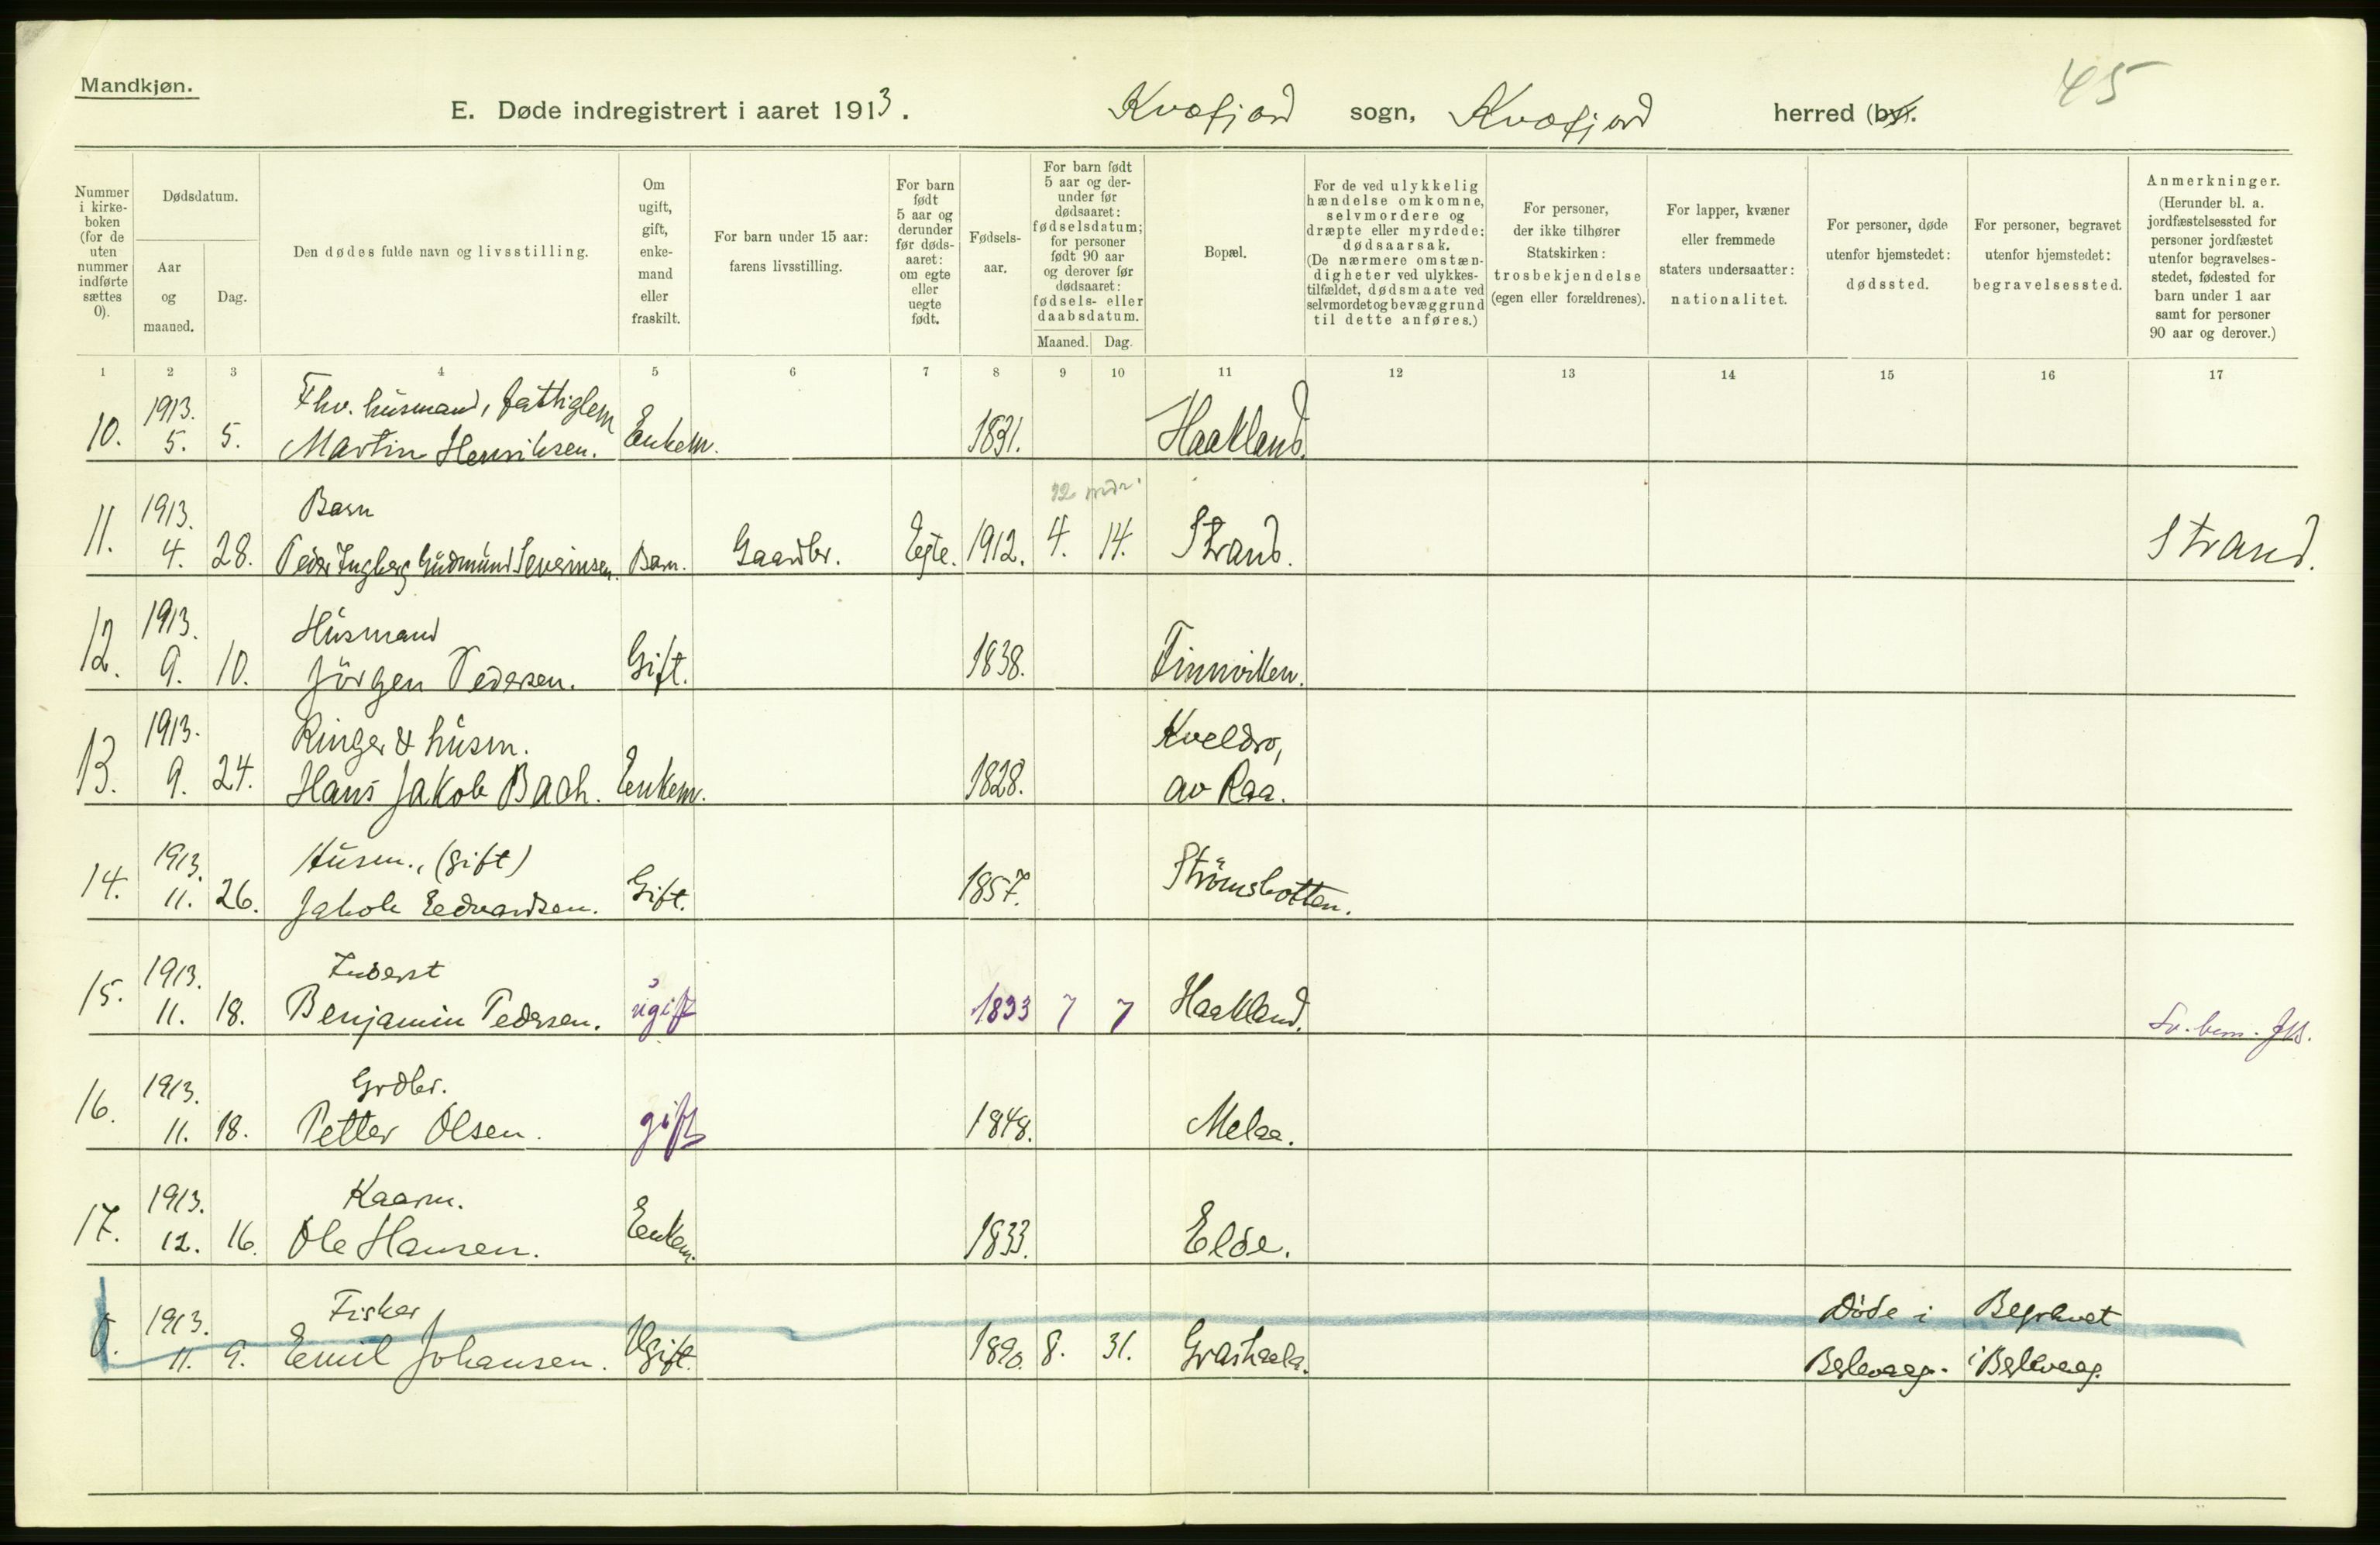 45
Mandkjøn.
E. Døde indregistrert i aaret 1913. Kvæfjord sogn, Kvæfjord herred (by).
Nummer i kirke-boken (for de uten nummer indførte sættes 0).
Dødsdatum.
Aar og maaned.
Dag.
Den dødes fulde navn og livsstilling.
Om ugift, gift, enke-mand eller fraskilt.
For barn under 15 aar: farens livsstilling.
For barn født 5 aar og derunder før døds-aaret: om egte eller uegte født.
Fødsels-aar.
For barn født 5 aar og der-under før dødsaaret: fødselsdatum; for personer født 90 aar og derover før dødsaaret: fødsels- eller daabsdatum.
Maaned. Dag.
Bopæl.
For de ved ulykkelig hændelse omkomne, selvmordere og dræpte eller myrdede: dødsaarsak. (De nærmere omstæn-digheter ved ulykkes-tilfældet, dødsmaate ved selvmordet og bevæggrund til dette anføres.)
For personer, der ikke tilhører Statskirken: trosbekjendelse (egen eller forældrenes).
For lapper, kvæner eller fremmede staters undersaatter: nationalitet.
For personer, døde utenfor hjemstedet: dødssted.
For personer, begravet utenfor hjemstedet: begravelsessted.
Anmerkninger. (Herunder bl. a. jordfæstelsessted for personer jordfæstet utenfor begravelses-stedet, fødested for barn under 1 aar samt for personer 90 aar og derover.)
1 2 3 4 5 6 7 8 9 10 11 12 13 14 15 16 17
1913. Fhv. husmand, fattiglem
10. 5. 5. Martin Henriksen. Enkem. 1831. Haakland.
1913. Barn 12 mdr.
11. 4. 28. Peder Ingberg Gudmund Severinsen. Barn. Gaardbr. Egte. 1912. 4. 14. Strand. Strand.
1913. Husmand
12. 9. 10. Jörgen Pedersen. Gift. 1838. Finnviken.
1913. Ringer & husm. Kveldro,
13. 9. 24. Hans Jakob Bach. Enkem. 1828. av Raa.
1913. Husm., (gift)
14. 11. 26. Jakob Eedvardsen. Gift. 1857. Strömsbotten.
1913. Inderst
15. 11. 18. Benjamin Pedersen. ugift 1833 7 7 Haakland.
1913. Grdbr.
16. 11. 18. Petter Olsen. gift 1848. Melaa.
1913. Kaarm.
17. 12. 16. Ole Hansen. Enkem. 1833. Elde.
1913. Fisker Døde i Begravet
0. 11. 9. Emil Johansen. Ugift. 1890. 8. 31. Berlevaag. i Berlevaag.